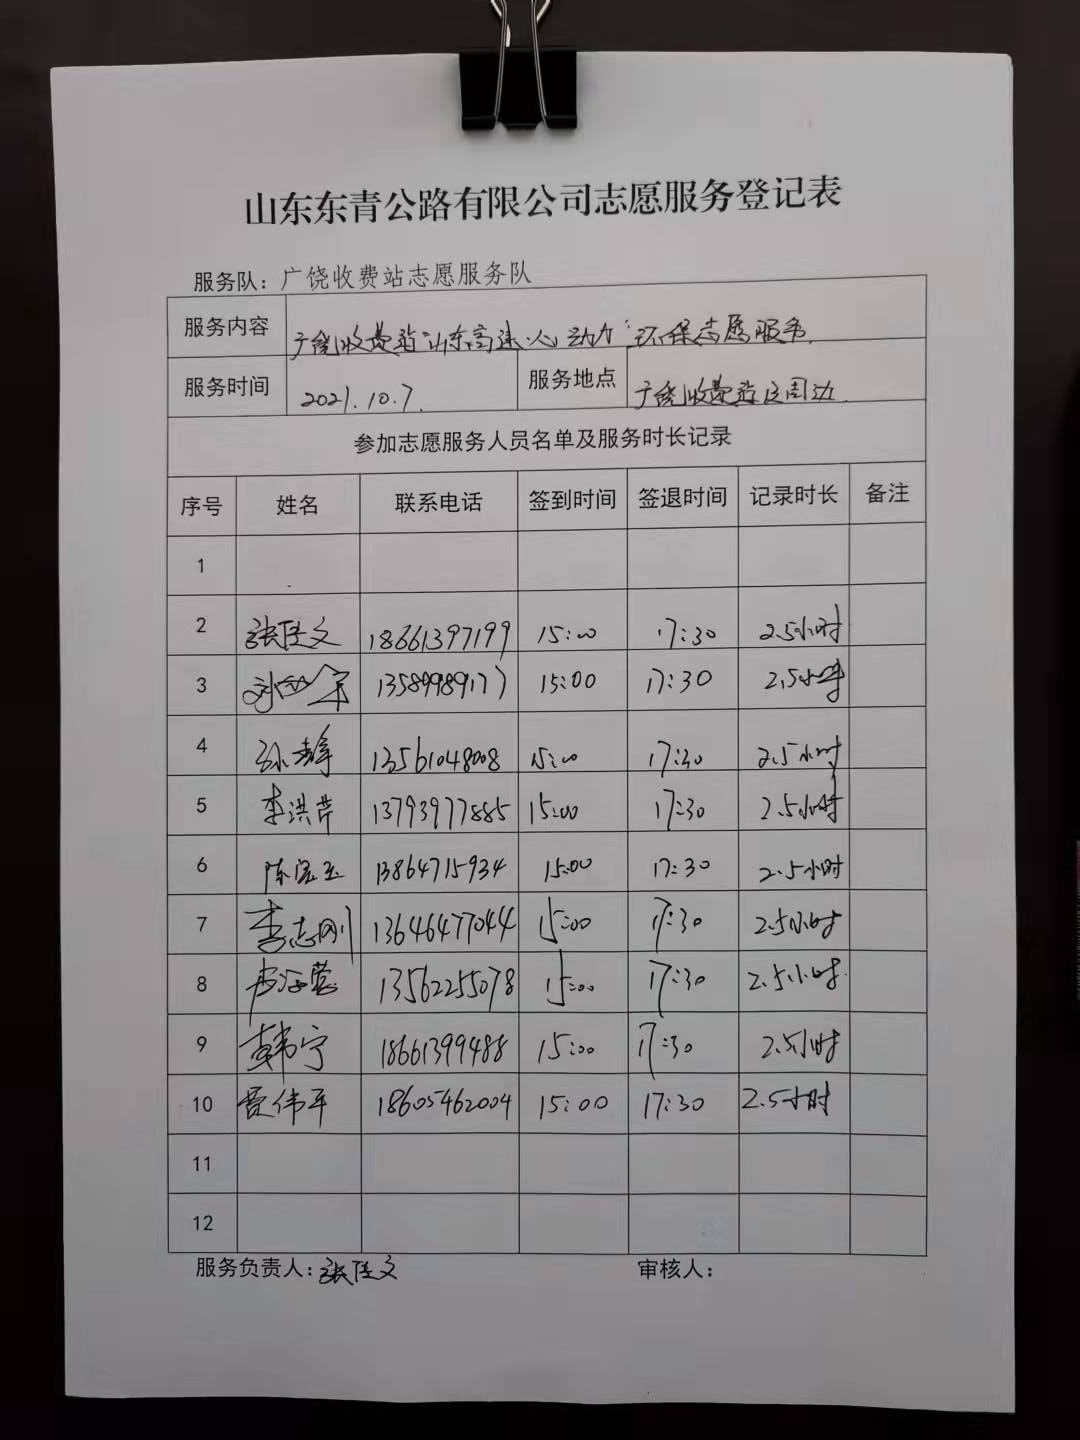 山东东青公路有限公司志愿服务登记表
服务队：广饶收费站志愿服务队
服务内容 广饶收费站“山东高速·心动力”环保志愿服务
服务时间 2021.10.7. 服务地点 广饶收费站及周边
参加志愿服务人员名单及服务时长记录
序号 姓名 联系电话 签到时间 签退时间 记录时长 备注
1
2 张佳文 18661397199 15:00 17:30 2.5小时
3 刘 13589989177 15:00 17:30 2.5小时
4 孙静 13561048008 15:00 17:30 2.5小时
5 李洪芹 13793977885 15:00 17:30 2.5小时
6 陈宝玉 13864715934 15:00 17:30 2.5小时
7 李志刚 13646477044 15:00 17:30 2.5小时
8 13562255078 15:00 17:30 2.5小时
9 韩宁 18661399488 15:00 17:30 2.5小时
10 贾伟平 18605462004 15:00 17:30 2.5小时
11
12
服务负责人：张佳文 审核人：